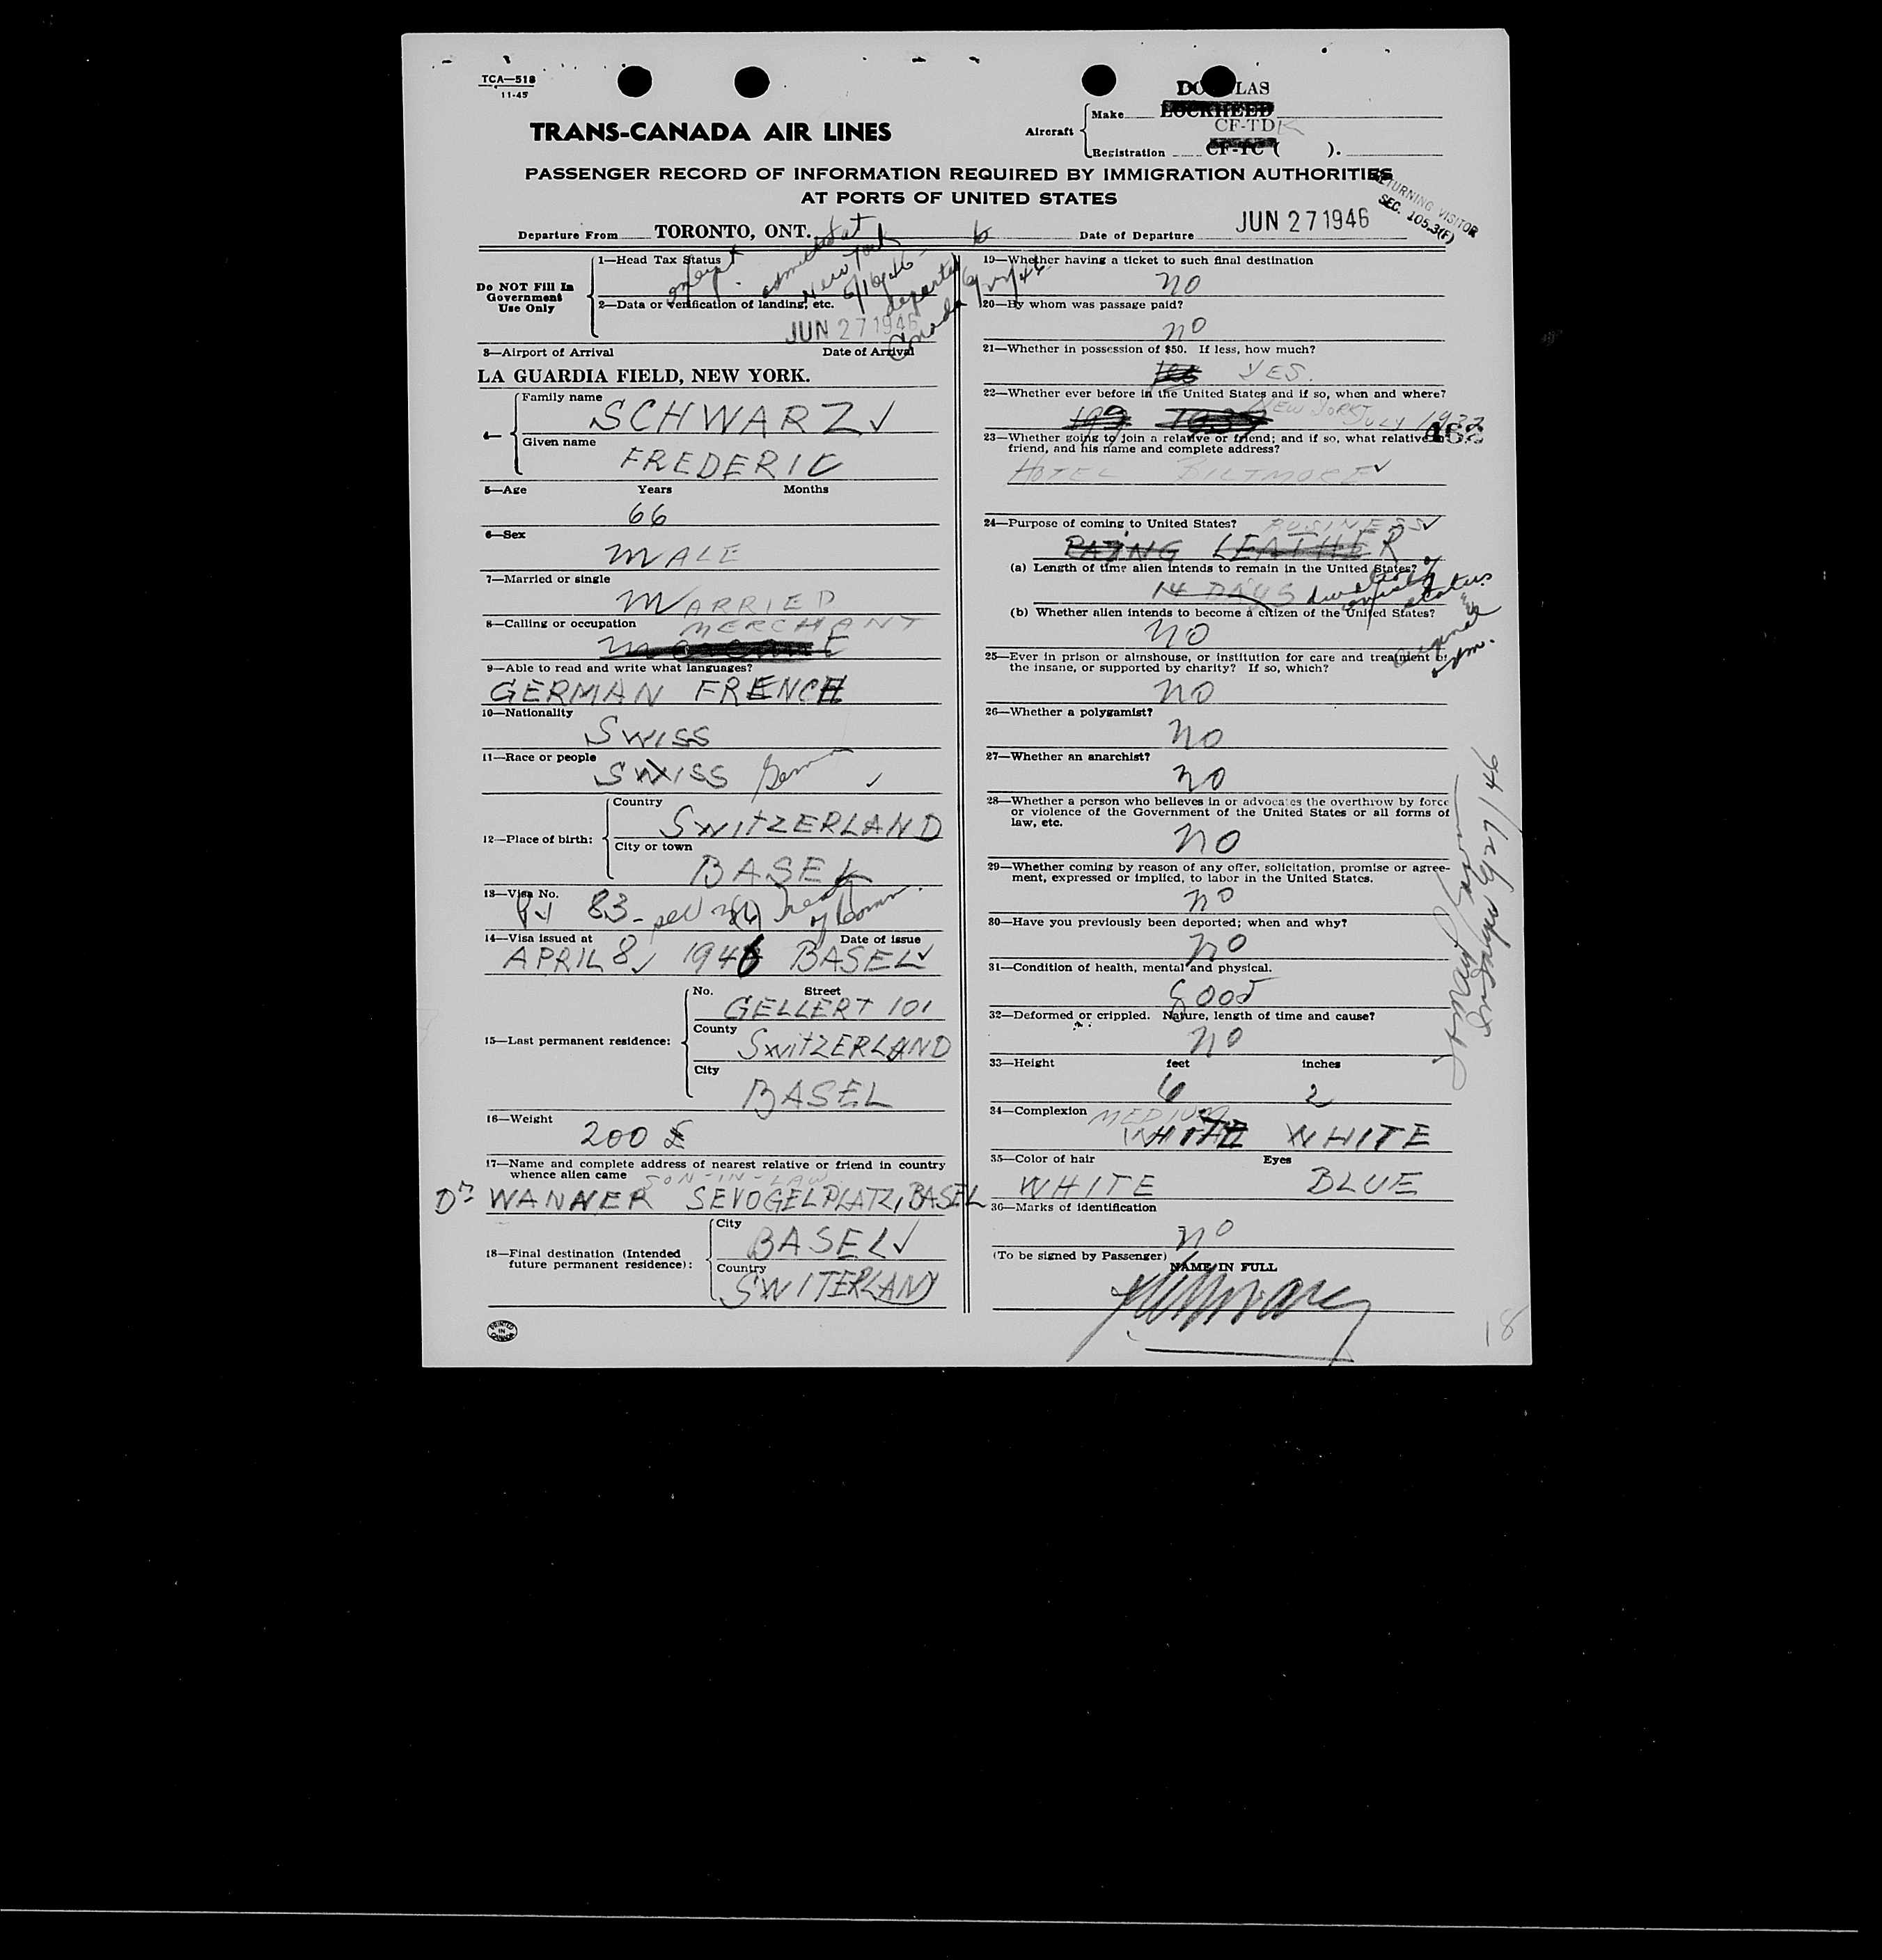 TCA—518
11-45
DOUGLAS
Aircraft
Make LOCKHEED
CF-TDK
Registration CF-TC ( ).
TRANS-CANADA AIR LINES
PASSENGER RECORD OF INFORMATION REQUIRED BY IMMIGRATION AUTHORITIES
AT PORTS OF UNITED STATES
RETURNING VISITOR
SEC. 105.3(F)
Departure From TORONTO, ONT.
Date of Departure JUN 27 1946
Do NOT Fill In
Government
Use Only
1—Head Tax Status
admitted at
New York
6/16/46-
departed
Canada
2—Data or verification of landing, etc.
JUN 27 1946
3—Airport of Arrival Date of Arrival
LA GUARDIA FIELD, NEW YORK.
4—
Family name SCHWARZ ✓
Given name FREDERIC
5—Age Years Months
66
6—Sex
MALE
7—Married or single
MARRIED
8—Calling or occupation MERCHANT
9—Able to read and write what languages?
GERMAN FRENCH
10—Nationality
SWISS
11—Race or people
SWISS German ✓
12—Place of birth:
Country
SWITZERLAND
City or town
BASEL
13—Visa No.
PV 83- Treaty of Comm.
14—Visa issued at Date of issue
APRIL 8 ✓ 1946 BASEL ✓
15—Last permanent residence:
No. Street
GELLERT 101
County
SWITZERLAND
City
BASEL
16—Weight
200 £
17—Name and complete address of nearest relative or friend in country
whence alien came SON-IN-LAW
Dr WANNER SEVOGELPLATZ, BASEL
18—Final destination (Intended
future permanent residence):
City
BASEL ✓
Country
SWITERLAND
PRINTED
IN
CANADA
19—Whether having a ticket to such final destination
no
20—By whom was passage paid?
no
21—Whether in possession of $50. If less, how much?
Yes YES.
22—Whether ever before in the United States and if so, when and where?
NEW YORK JULY
462
23—Whether going to join a relative or friend; and if so, what relative or
friend, and his name and complete address?
HOTEL BILTMORE ✓
24—Purpose of coming to United States? BUSINESS ✓
LEATHER
(a) Length of time alien intends to remain in the United States?
14 DAYS
status
original
adm.
(b) Whether alien intends to become a citizen of the United States?
NO
25—Ever in prison or almshouse, or institution for care and treatment of
the insane, or supported by charity? If so, which?
no
26—Whether a polygamist?
no
27—Whether an anarchist?
no
28—Whether a person who believes in or advocates the overthrow by force
or violence of the Government of the United States or all forms of
law, etc.
no
29—Whether coming by reason of any offer, solicitation, promise or agree-
ment, expressed or implied, to labor in the United States.
no
30—Have you previously been deported; when and why?
no
31—Condition of health, mental and physical.
good
32—Deformed or crippled. Nature, length of time and cause?
no
33—Height feet inches
6 2
34—Complexion MEDIUM
WHITE WHITE
35—Color of hair Eyes
WHITE BLUE
36—Marks of identification
no
(To be signed by Passenger)
NAME IN FULL
6/27/46
18